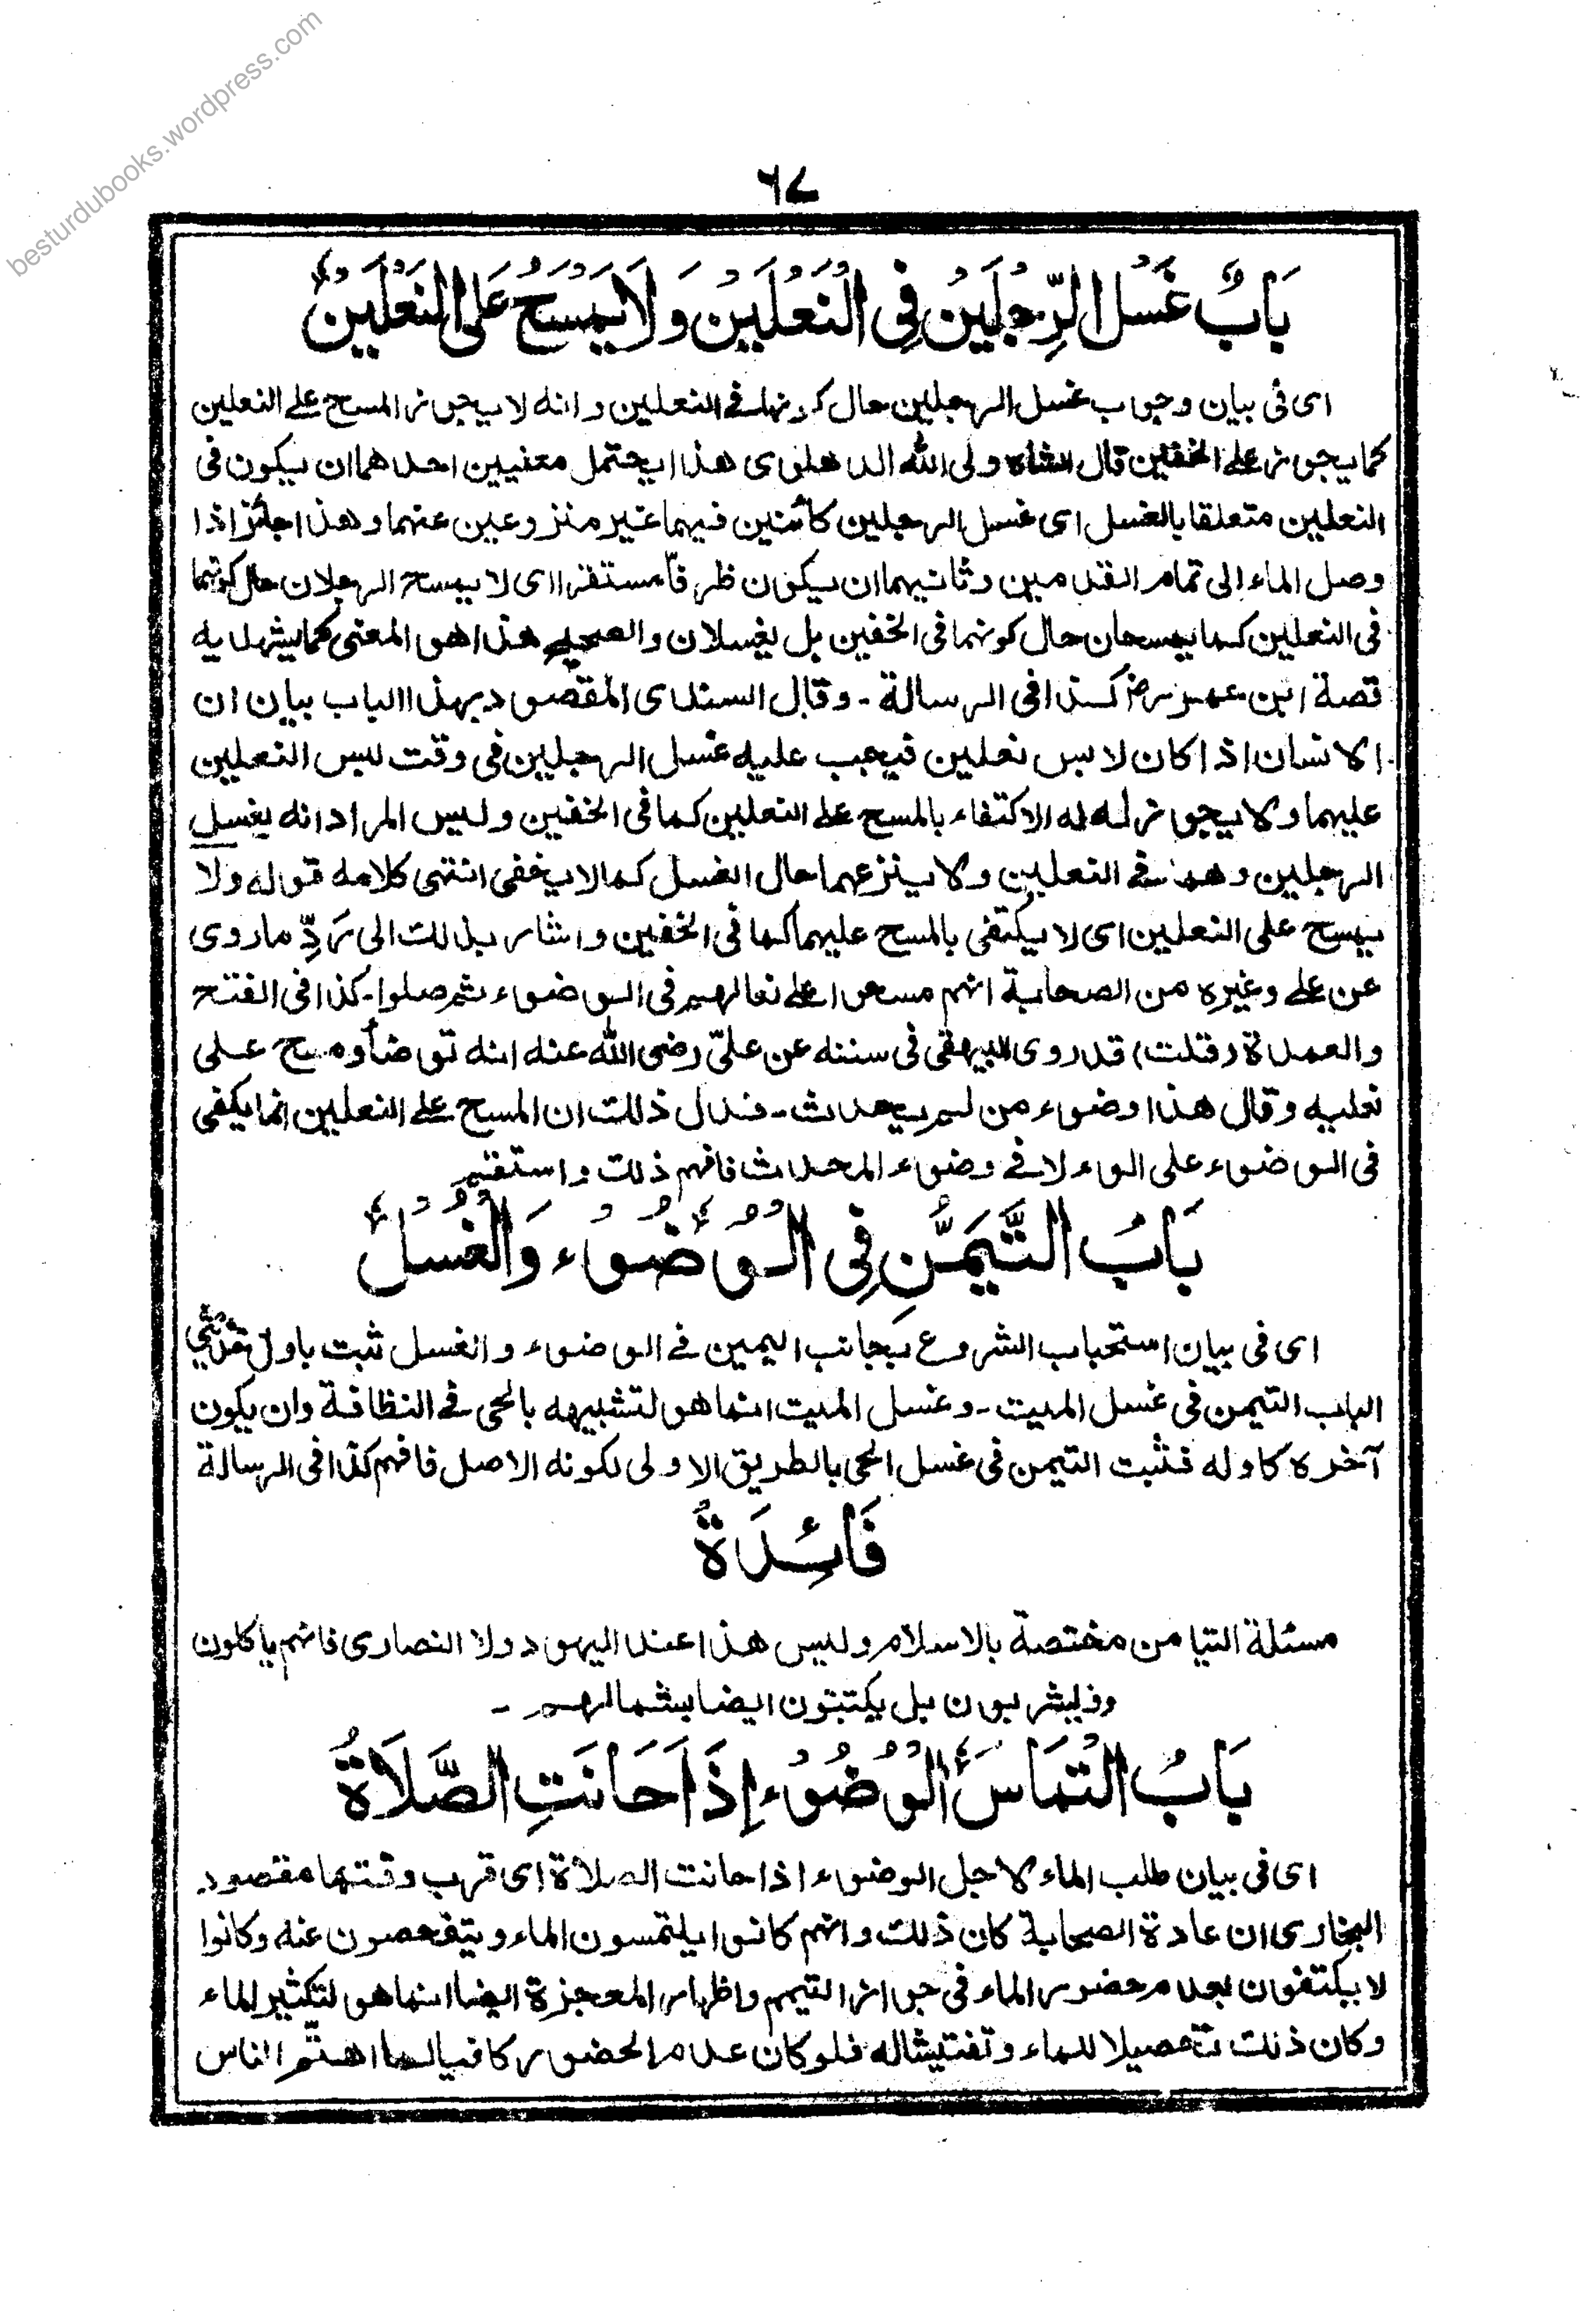 besturdubooks.wordpress.com
٦٧
بَابُ غَسْلِ الرِّجْلَيْنِ فِي النَّعْلَيْنِ وَلَا يَمْسَحُ عَلَى النَّعْلَيْنِ
ای فی بیان وجوب غسل الرجلین حال کونهما فی النعلین وانه لا یجوز المسح علی النعلین
کما یجوز علی الخفین قال الشاه ولی الله الدهلوی هذا یحتمل معنیین احدهما ان یکون فی
النعلین متعلقا بالغسل ای غسل الرجلین کائنین فیهما غیر منزوعین عنهما وهذا جائز اذا
وصل الماء الی تمام القدمین وثانیهما ان یکون ظرفا مستقرا ای لا یمسح الرجلان حال کونهما
فی النعلین کما یمسحان حال کونهما فی الخفین بل یغسلان والصحیح هذا هو المعنی کما یشهد به
قصة ابن عمر رض کذا فی الرسالة ۔ وقال السندی المقصود بهذا الباب بیان ان
الانسان اذا کان لابس نعلین فیجب علیه غسل الرجلین فی وقت لبس النعلین
علیهما ولا یجوز له له الاکتفاء بالمسح علی النعلین کما فی الخفین ولیس المراد انه یغسل
الرجلین وهما فی النعلین ولا ینزعهما حال الغسل کما لا یخفی انتهی کلامه قوله ولا
یمسح علی النعلین ای لا یکتفی بالمسح علیهما کما فی الخفین واشار بذلك الی رَدِّ ما روی
عن علی وغیره من الصحابة انهم مسحوا علی نعالهم فی الوضوء ثم صلوا۔ کذا فی الفتح
والعمدة (قلت) قد روی البیهقی فی سننه عن علیّ رضی الله عنه انه توضأ ومسح علی
نعلیه وقال هذا وضوء من لم یحدث ۔ فدل ذلك ان المسح علی النعلین انما یکفی
فی الوضوء علی الوضوء لا فی وضوء المحدث فافهم ذلك واستقم
بَابُ التَّيَمُّنِ فِي الْوُضُوْءِ وَالْغُسْلِ
ای فی بیان استحباب الشروع بجانب الیمین فی الوضوء والغسل ثبت باول حدیثی
الباب التیمن فی غسل المیت ۔ وغسل المیت انما هو لتشبیهه بالحی فی النظافة وان یکون
آخره کاوله فثبت التیمن فی غسل الحی بالطریق الاولی لکونه الاصل فافهم کذا فی الرسالة
فَائِدَةٌ
مسئلة التیامن مختصة بالاسلام ولیس هذا عند الیهود ولا النصاری فانهم یاکلون
ویشربون بل یکتبون ایضا بشمالهم ۔
بَابُ الْتِمَاسِ الْوُضُوْءِ إِذَا حَانَتِ الصَّلَاةُ
ای فی بیان طلب الماء لاجل الوضوء اذا حانت الصلاة ای قرب وقتها مقصود
البخاری ان عادة الصحابة کان ذلك وانهم کانوا یلتمسون الماء ویتفحصون عنه وکانوا
لا یکتفون بعدم حضور الماء فی جواز التیمم واظهار المعجزة ایضا انما هو لتکثیر الماء
وکان ذلك تحصیلا للماء وتفتیشا له فلو کان عدم الحضور کافیا لما اهتّم الناس